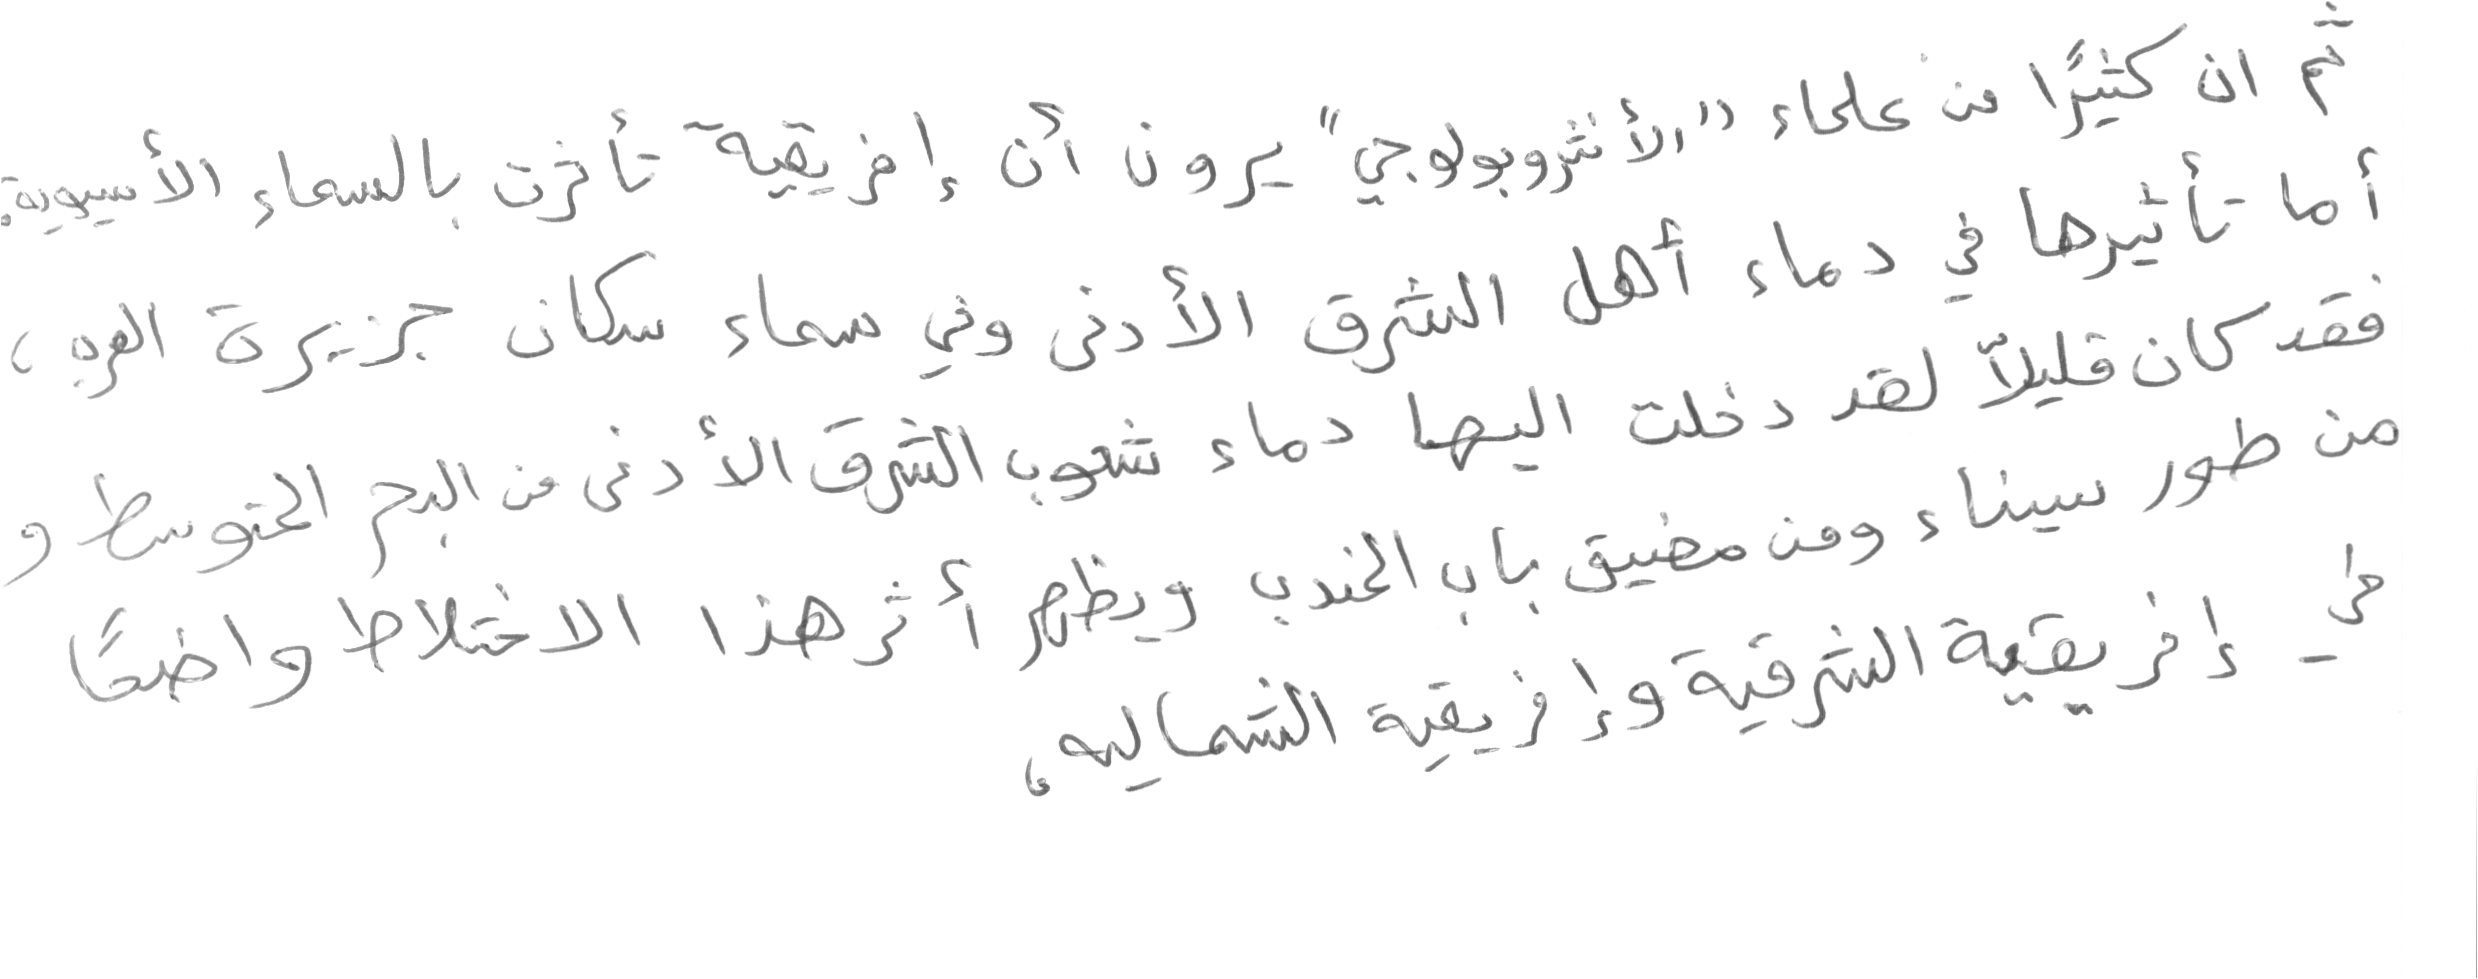 ثم ان كثيرًا من علماء "الأنثروبولوجي" يرون أن إفريقية تأثرت بالسماء الأسيوية.
أما تأثيرها في دماء أهل الشرق الأدنى وفي سماء سكان جزيرة العرب،
فقد كان قليلاً لقد دخلت اليها دماء شعوب الشرق الأدنى من البحر المتوسط و
من طور سيناء ومن مضيق باب المندب ويظهر أثر هذا الاختلاط واضحًا
في إفريقية الشرقية وإفريقية الشماليه،